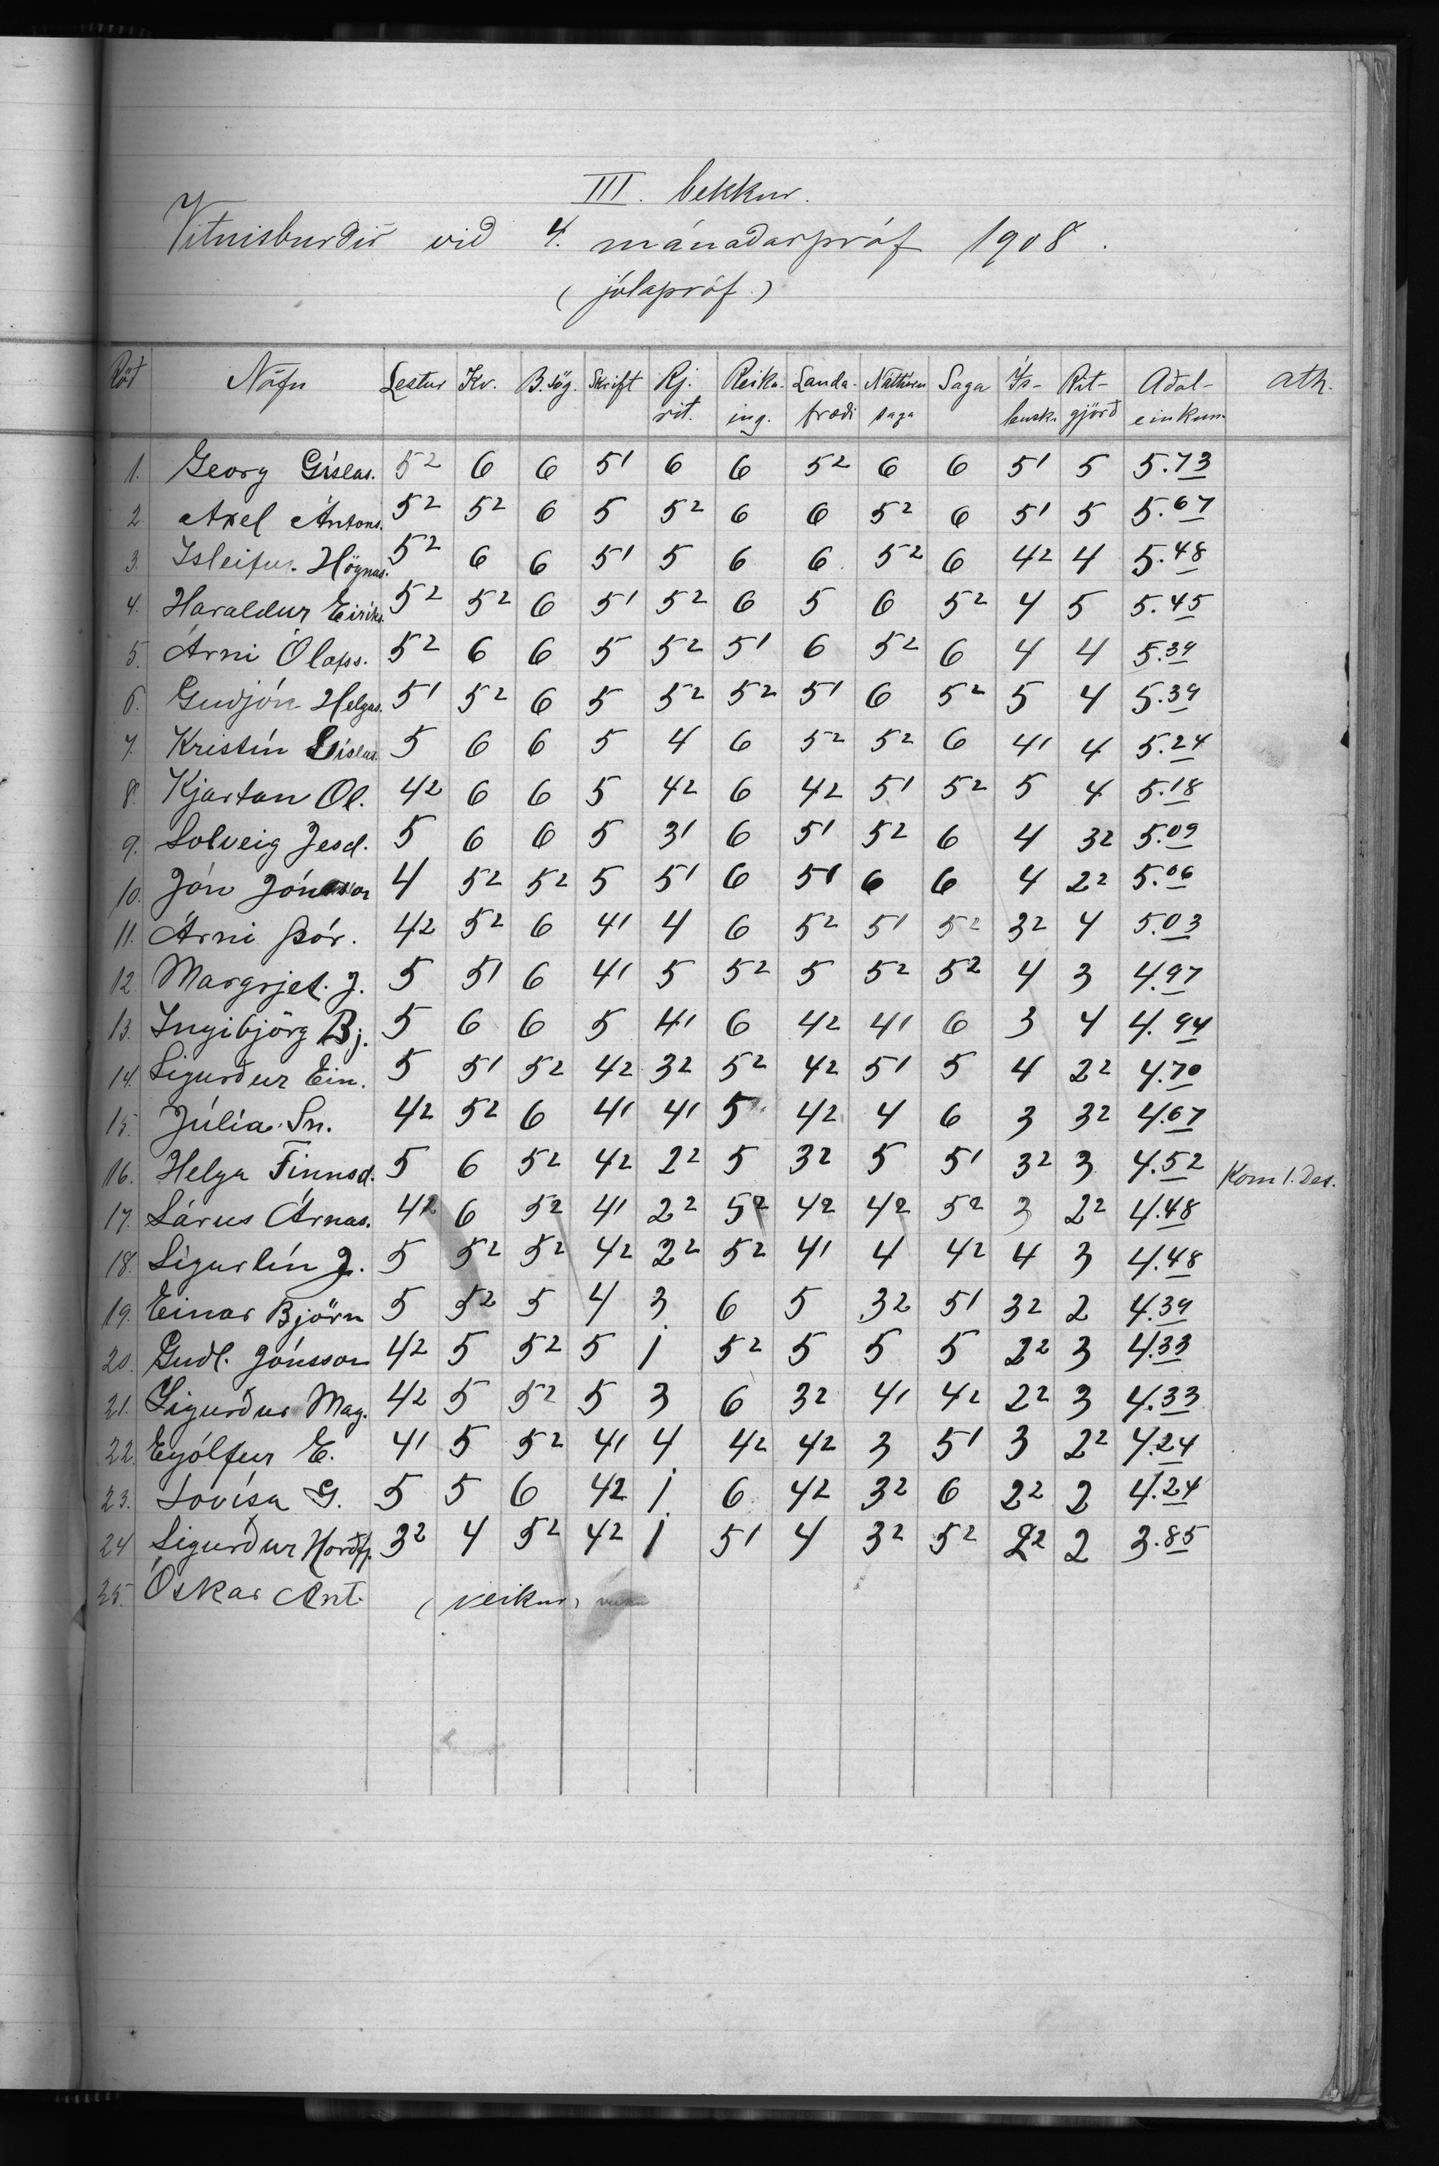 III. bekkur.
Vitnisburðir við 4. mánaðarpróf 1908.
(jólapróf)
Röð Nöfn Lestur Kv. B.sög. Skrift Rj. rit. Reikn. ing. Landa. fræði Náttúru saga Saga Ís- lensk. Rit- gjörð Aðal- einkunn Ath.
1. Georg Gíslas. 5² 6 6 5¹ 6 6 5² 6 6 5¹ 5 5.73
2. Axel Antons. 5² 5² 6 5 5² 6 6 5² 6 5¹ 5 5.67
3. Ísleifur Högnas. 5² 6 6 5¹ 5 6 6 5² 6 4² 4 5.48
4. Haraldur Eiríks. 5² 5² 6 5¹ 5² 6 5 6 5² 4 5 5.45
5. Árni Ólafss. 5² 6 6 5 5² 5¹ 6 5² 6 4 4 5.39
6. Guðjón Helgas. 5¹ 5² 6 5 5² 5² 5¹ 6 5² 5 4 5.39
7. Kristín Gíslad. 5 6 6 5 4 6 5² 5² 6 4¹ 4 5.24
8. Kjartan Ól. 4² 6 6 5 4² 6 4² 5¹ 5² 5 4 5.18
9. Solveig Jesd. 5 6 6 5 3¹ 6 5¹ 5² 6 4 3² 5.09
10. Jón Jónsson 4 5² 5² 5 5¹ 6 5¹ 6 6 4 2² 5.06
11. Árni Þór. 4² 5² 6 4¹ 4 6 5² 5¹ 5² 3² 4 5.03
12. Margrjet. J. 5 5¹ 6 4¹ 5 5² 5 5² 5² 4 3 4.97
13. Ingibjörg Bj. 5 6 6 5 4¹ 6 4² 4¹ 6 3 4 4.94
14. Sigurður Ein. 5 5¹ 5² 4² 3² 5² 4² 5¹ 5 4 2² 4.70
15. Júlía Sn. 4² 5² 6 4¹ 4¹ 5 4² 4 6 3 3² 4.67
16. Helga Finnsd. 5 6 5² 4² 2² 5 3² 5 5¹ 3² 3 4.52 Kom 1. Des.
17. Lárus Árnas. 4² 6 5² 4¹ 2² 5² 4² 4² 5² 3 2² 4.48
18. Sigurlín J. 5 5² 5² 4² 2² 5² 4¹ 4 4² 4 3 4.48
19. Einar Björn 5 5² 5 4 3 6 5 3² 5¹ 3² 2 4.39
20. Guðl. Jónsson 4² 5 5² 5 1 5² 5 5 5 2² 3 4.33
21. Sigurður Mag. 4² 5 5² 5 3 6 3² 4¹ 4² 2² 3 4.33
22. Eyjólfur E. 4¹ 5 5² 4¹ 4 4² 4² 3 5¹ 3 2² 4.24
23. Lovísa G. 5 5 6 4² 1 6 4² 3² 6 2² 2 4.24
24 Sigurður Norðfj. 3² 4 5² 4² 1 5¹ 4 3² 5² 2² 2 3.85
25. Óskar Ant. (veikur)